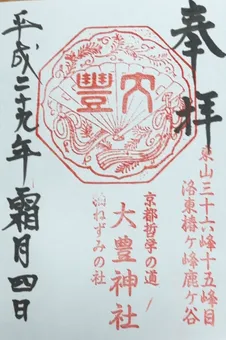 奉拝
東山三十六峰十五峰目
洛東椿ヶ峰鹿ヶ谷
大豊
京都哲学の道
大豊神社
狛ねずみの社
平成二十九年霜月四日